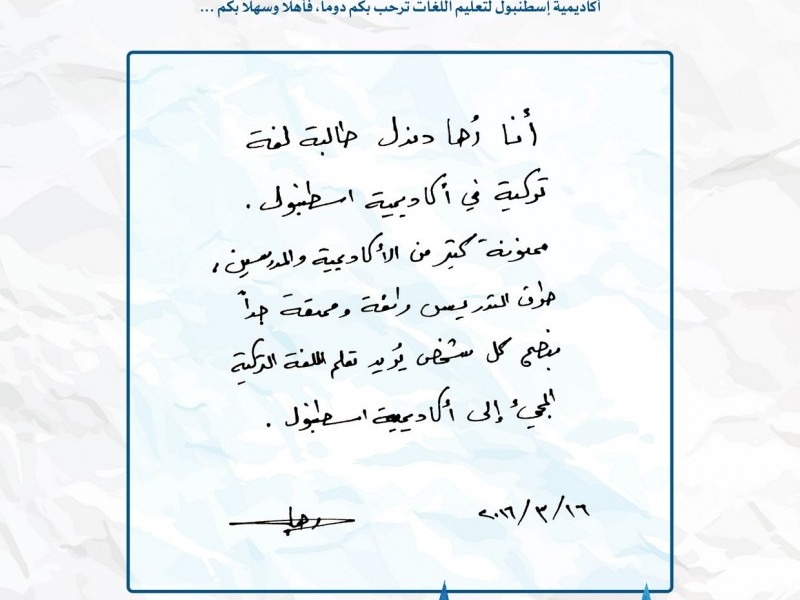 أكاديمية إسطنبول لتعليم اللغات ترحب بكم دوماً، فأهلاً وسهلاً بكم ...
أنا رُحا دندل طالبة لغة
تركية في أكاديمية اسطنبول .
ممنونة كتير من الأكاديمية والمدرسين ،
طرق التدريس رائعة وممتعة جداً
بنصح كل شخص يُريد تعلم اللغة التركية
المجيءُ إلى أكاديمية اسطنبول .
٢٠١٦/٣/١٦